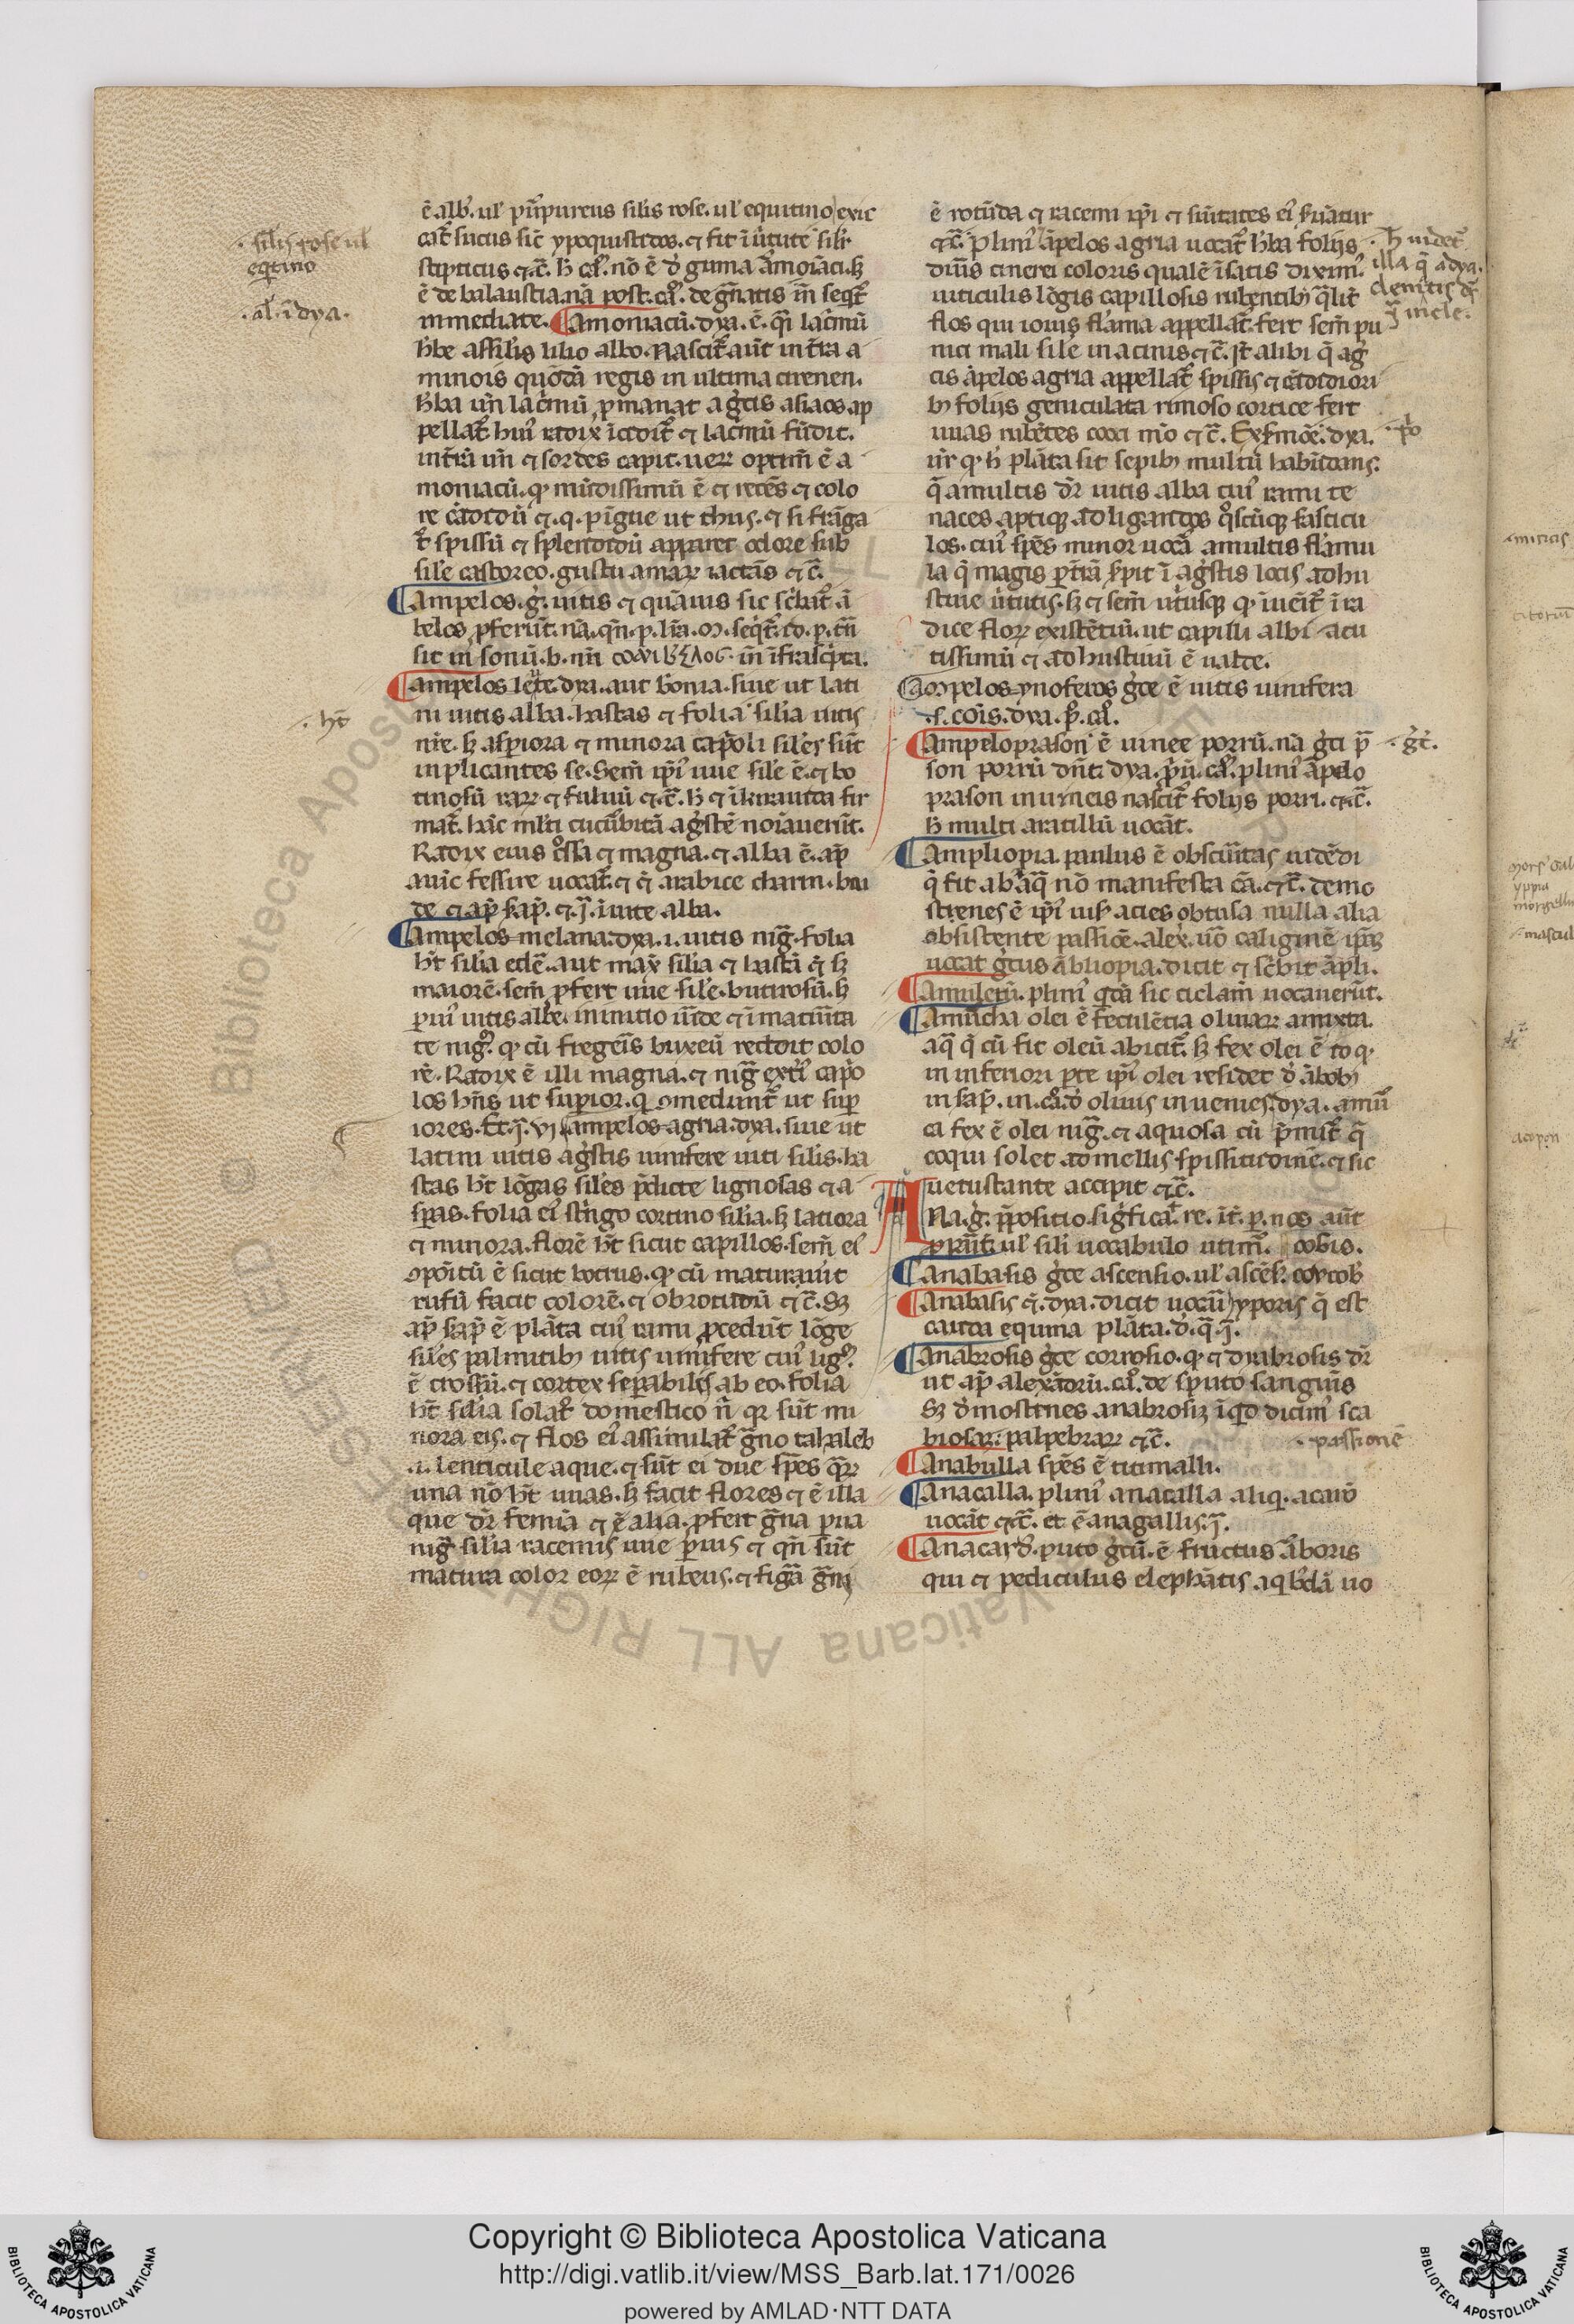 ē alb᷒. ul᷒ pūpureus silis rose. ul᷒ equitino exic
cat᷒ sucus sic̄ ypoquistidos. ⁊ fit ī ūtute sil᷒r
stipticus ⁊c̄. h̄ ca᷒. nō ē d̓ guma āmoīaci. sꝫ
ē de balaustia. nā post. ca᷒. de gn̄atis īn seqt᷒
inmediate. Amoniacū. dya. ē. q̄i lac̓mū
h̓be assilis lilio albo. Nascit᷒ aūt in t̄ra a
minois quōdā regis in ultima cirenen.
h̓ba u̓n lac̓mū ꝓmanat a g̓cis asiaos ap
pellat᷒ hui᷒ radix īcidit᷒ ⁊ lac̓mū fūdit.
int̄rā u̓n ⁊ sordes capit. ueꝝ optim̄ ē a
moniacū. qꝫ mūdissimū ē ⁊ recēs ⁊ colo
re cādidū ⁊. q. pīgue ut thus. ⁊ si frāga
t᷒ spissū ⁊ splendidū apparet odore sub
sile castoreo. gustu amaꝝ iactās ⁊c̄.
Ampelos. g̓. uitis ⁊ quāuis sic sc̓bit᷒ ā
belos ꝓferūt. nā. qn̄. p. lr̄a. m. seqt᷒. id. p. tn̄
sit in sonū. b. nr̄i īn īfrasc̓pta.
Ampelos leuce. dya. aut bōnia. siue ut lati
ni uitis alba. hastas ⁊ folia silia uitis
nr̄e. sꝫ asꝑiora ⁊ minora cap̓oli siles sūt
inplicantes se. Sem̄ ip̄i᷒ uue sile ē. ⁊ bo
tinosū raꝝ ⁊ fuluū ⁊c̄. h̄ ⁊
mat᷒. hāc ml̓ti cucūbitā ag̓stē noīauerūt.
Radix eius c̓ssa ⁊ magna. ⁊ alba ē. ap̄
auic̄ fessire uocat᷒. ⁊ arabice
de ⁊ ap̄ sap̄. ⁊. J. ī uite alba.
Ampelos melana. dya. i. uitis niḡ. folia
h̄t silia edē. aut max̄ silia ⁊ hastā sꝫ
maiorē. sem̄ ꝓfert uue sile. butirosū. sꝫ
ꝑui᷒ uitis albe. in initio uīde ⁊ ī matūita
te nig᷒. qꝫ cū fregeīs buxeū reddit colo
rē. Radix ē illi magna. ⁊ niḡ extī᷒ cap̓o
los hn̄s ut suꝑior. q ꝯmedunt᷒ ut suꝑ
iores. ampelos agria. dya. siue ut
latini uitis ag̓stis uinifere uiti silis. ha
stas h̄t lōgas siles p̄dicte lignosas ⁊ a
spas. folia ei᷒ st̓ngo cortino silia. sꝫ latiora
⁊ minora. florē h̄t sicut capillos. sem̄ ei᷒
ꝯpoītū ē sicut botrus. qꝫ cū maturauit
rufū facit colorē. ⁊ ob rotūdū ⁊c̄. Sꝫ
ap̄ sap̄ ē plāta cui᷒ rami ꝓcedūt lōge
siles palmitibꝫ uitis uinifere cui᷒ lig᷒.
ē crossū. ⁊ cortex seꝑabilis ab eo. folia
h̄t silia solat᷒ domestico n̄ qꝛ sūt mi
nora eis. ⁊ flos ei᷒ assimilat᷒ ḡno tahaleb
.i. lenticule aque. ⁊ sūt ei due sp̄es qꝝ
una nō h̄t uuas. sꝫ facit flores ⁊ ē illa
que dr̄ femīa ⁊ ē alia. ꝓfert ḡna ꝑua
niḡ silia racemis uue ꝑuis ⁊ qn̄ sūt
matura color eoꝝ ē rubeus. ⁊ figā ḡni
ē rotūda ⁊ racemi ip̄i ⁊ sūitates ei᷒ s̓uātur
⁊c̄. plini᷒ āpelos agria uocat᷒ h̓ba folijs
diuīs cinerei coloris qualē isatis dixim᷒.
uiticulis lōgis capillosis rubentibꝫ q̄lit᷒
flos qui iouis flāma appellat᷒. fert sem̄ pu
nici mali sile in acinis ⁊c̄. Jt᷒ alibi q̄ ag̓
cis āpelos agria appellat᷒ spissis ⁊ cādidiori
bꝫ folijs geniculata rimoso cortice fert
uuas rubētes cocci mō ⁊c̄. dya.
ur̄ qꝫ h̄ plāta sit sepibꝫ multū habūdans.
q̄ a multis dr̄ uitis alba cui᷒ rami te
naces aptiqꝫ ad ligandos q̓scūqꝫ fasticu
los. cui᷒ sp̄es minor uocā a multis flāmu
la q̄ magis ꝑ t̄rā s̓pit ī ag̓stis locis adhu
stiue ūtutis. sꝫ ⁊ sem̄ utiusqꝫ qꝫ īueīt᷒ ī ra
dice floꝝ existētiū. ut capilli albi acu
tissimū ⁊ ad hustiuū ē ualde.
Ampelos ynoferos g̓ce ē uitis uinifera
.s. cōis. dya. p̊. ca᷒.
Ampeloprason ē uinee porrū. nā g̓ci p̄
son porrū dn̄t. dya. p̓ū. ca᷒. plini᷒ āpelo
prason in uineis nascit᷒ folijs porri. ⁊c̄.
h̄ multi aratillū uocāt.
Ampliopia. paulus ē obscūitas uidēdi
q̄ fit ab aq̄ nō manifesta cā. ⁊c̄. demo
stienes ē ip̄i᷒ uis᷒ acies obtusa nulla alia
obsistente passiōe. alex̄. u᷒o caliginē ip̄aꝫ
uocat g̓cus ābliopia. dicit ⁊ sc̓bit āpli.
Amuletū. plini᷒ qdā sic ciclam̄ uocauerūt.
Amurcha olei ē feculētia oliuaꝝ amixta.
aq̄ q̄ cū fit oleū abicit᷒. sꝫ fex olei ē id qꝫ
in inferiori ꝑte ip̄i᷒ olei residet d̓ ābobꝫ
in sap̄. in. ca᷒. d̓ oliuis inuenies. dya. amur᷒
ca fex ē olei niḡ. ⁊ aquosa cū p̄mist᷒ q̄
coqui solet ad mellis spissitudinē. ⁊ sic
uetustante accipit ⁊c̄.
Ana. g̓. p̄positio. sig̓ficat᷒. re. it᷒. p. nos aūt
ul᷒ sili uocabulo utim᷒.
Anabasis g̓ce ascensio. ul᷒ ascēs᷒.
Anabasis dya. dicit uocari yporis q̄ est
cauda equina plāta. d̓. q̄. J.
Anabrosis g̓ce corrosio. qꝫ ⁊ dyabrosis dr̄
ut ap̄ alexādrū. ca᷒. de sputo sanguīs
Sꝫ d̓mostenes anabrosiꝫ īqd dicim᷒ sca
biosaꝝ palpebraꝝ ⁊c̄.
Anabulla sp̄es ē titimalli.
Anacalla. plini᷒ anacalla aliq. acaid̄
uocāt ⁊c̄. et ē anagallis. J.
Anacard᷒. puto g̓cū. ē fructus āboris
qui ⁊ pediculus elephātis. a qbꝫdā uo
· silis rose ul᷒
eqtino
· al᷒. ī dya ·
· h̄t
· h̄ uidet᷒
illa q̄ a dya.
clemitis
· p̊
· g̓t᷒.
· passionē
Copyright © Biblioteca Apostolica Vaticana
http://digi.vatlib.it/view/MSS_Barb.lat.171/0026
powered by AMLAD·NTT DATA
BIBLIOTECA APOSTOLICA VATICANA
BIBLIOTECA APOSTOLICA VATICANA